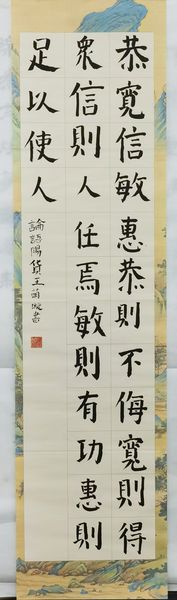 恭寬信敏惠恭則不侮寬則得
衆信則人任焉敏則有功惠則
足以使人
論語陽貨王苗㛃書